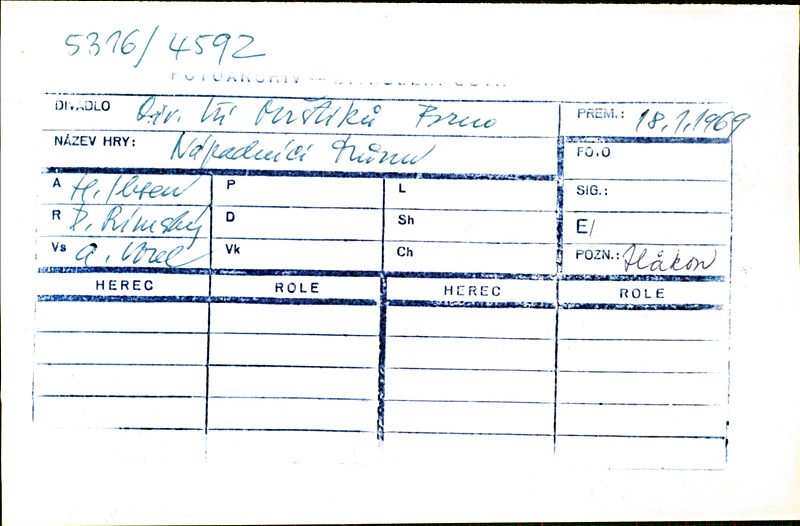 5316/4592
FOTOARCHIV — DIVADELNÍ ÚSTAV
DIVADLO Div. bří Mrštíků Brno PREM.: 18.1.1969
NÁZEV HRY: Nápadníci trůnu FOTO
A H. Ibsen P L SIG.:
R D. Rimský D Sh E/
Vs A. Vorel Vk Ch POZN.: Håkon
HEREC ROLE HEREC ROLE